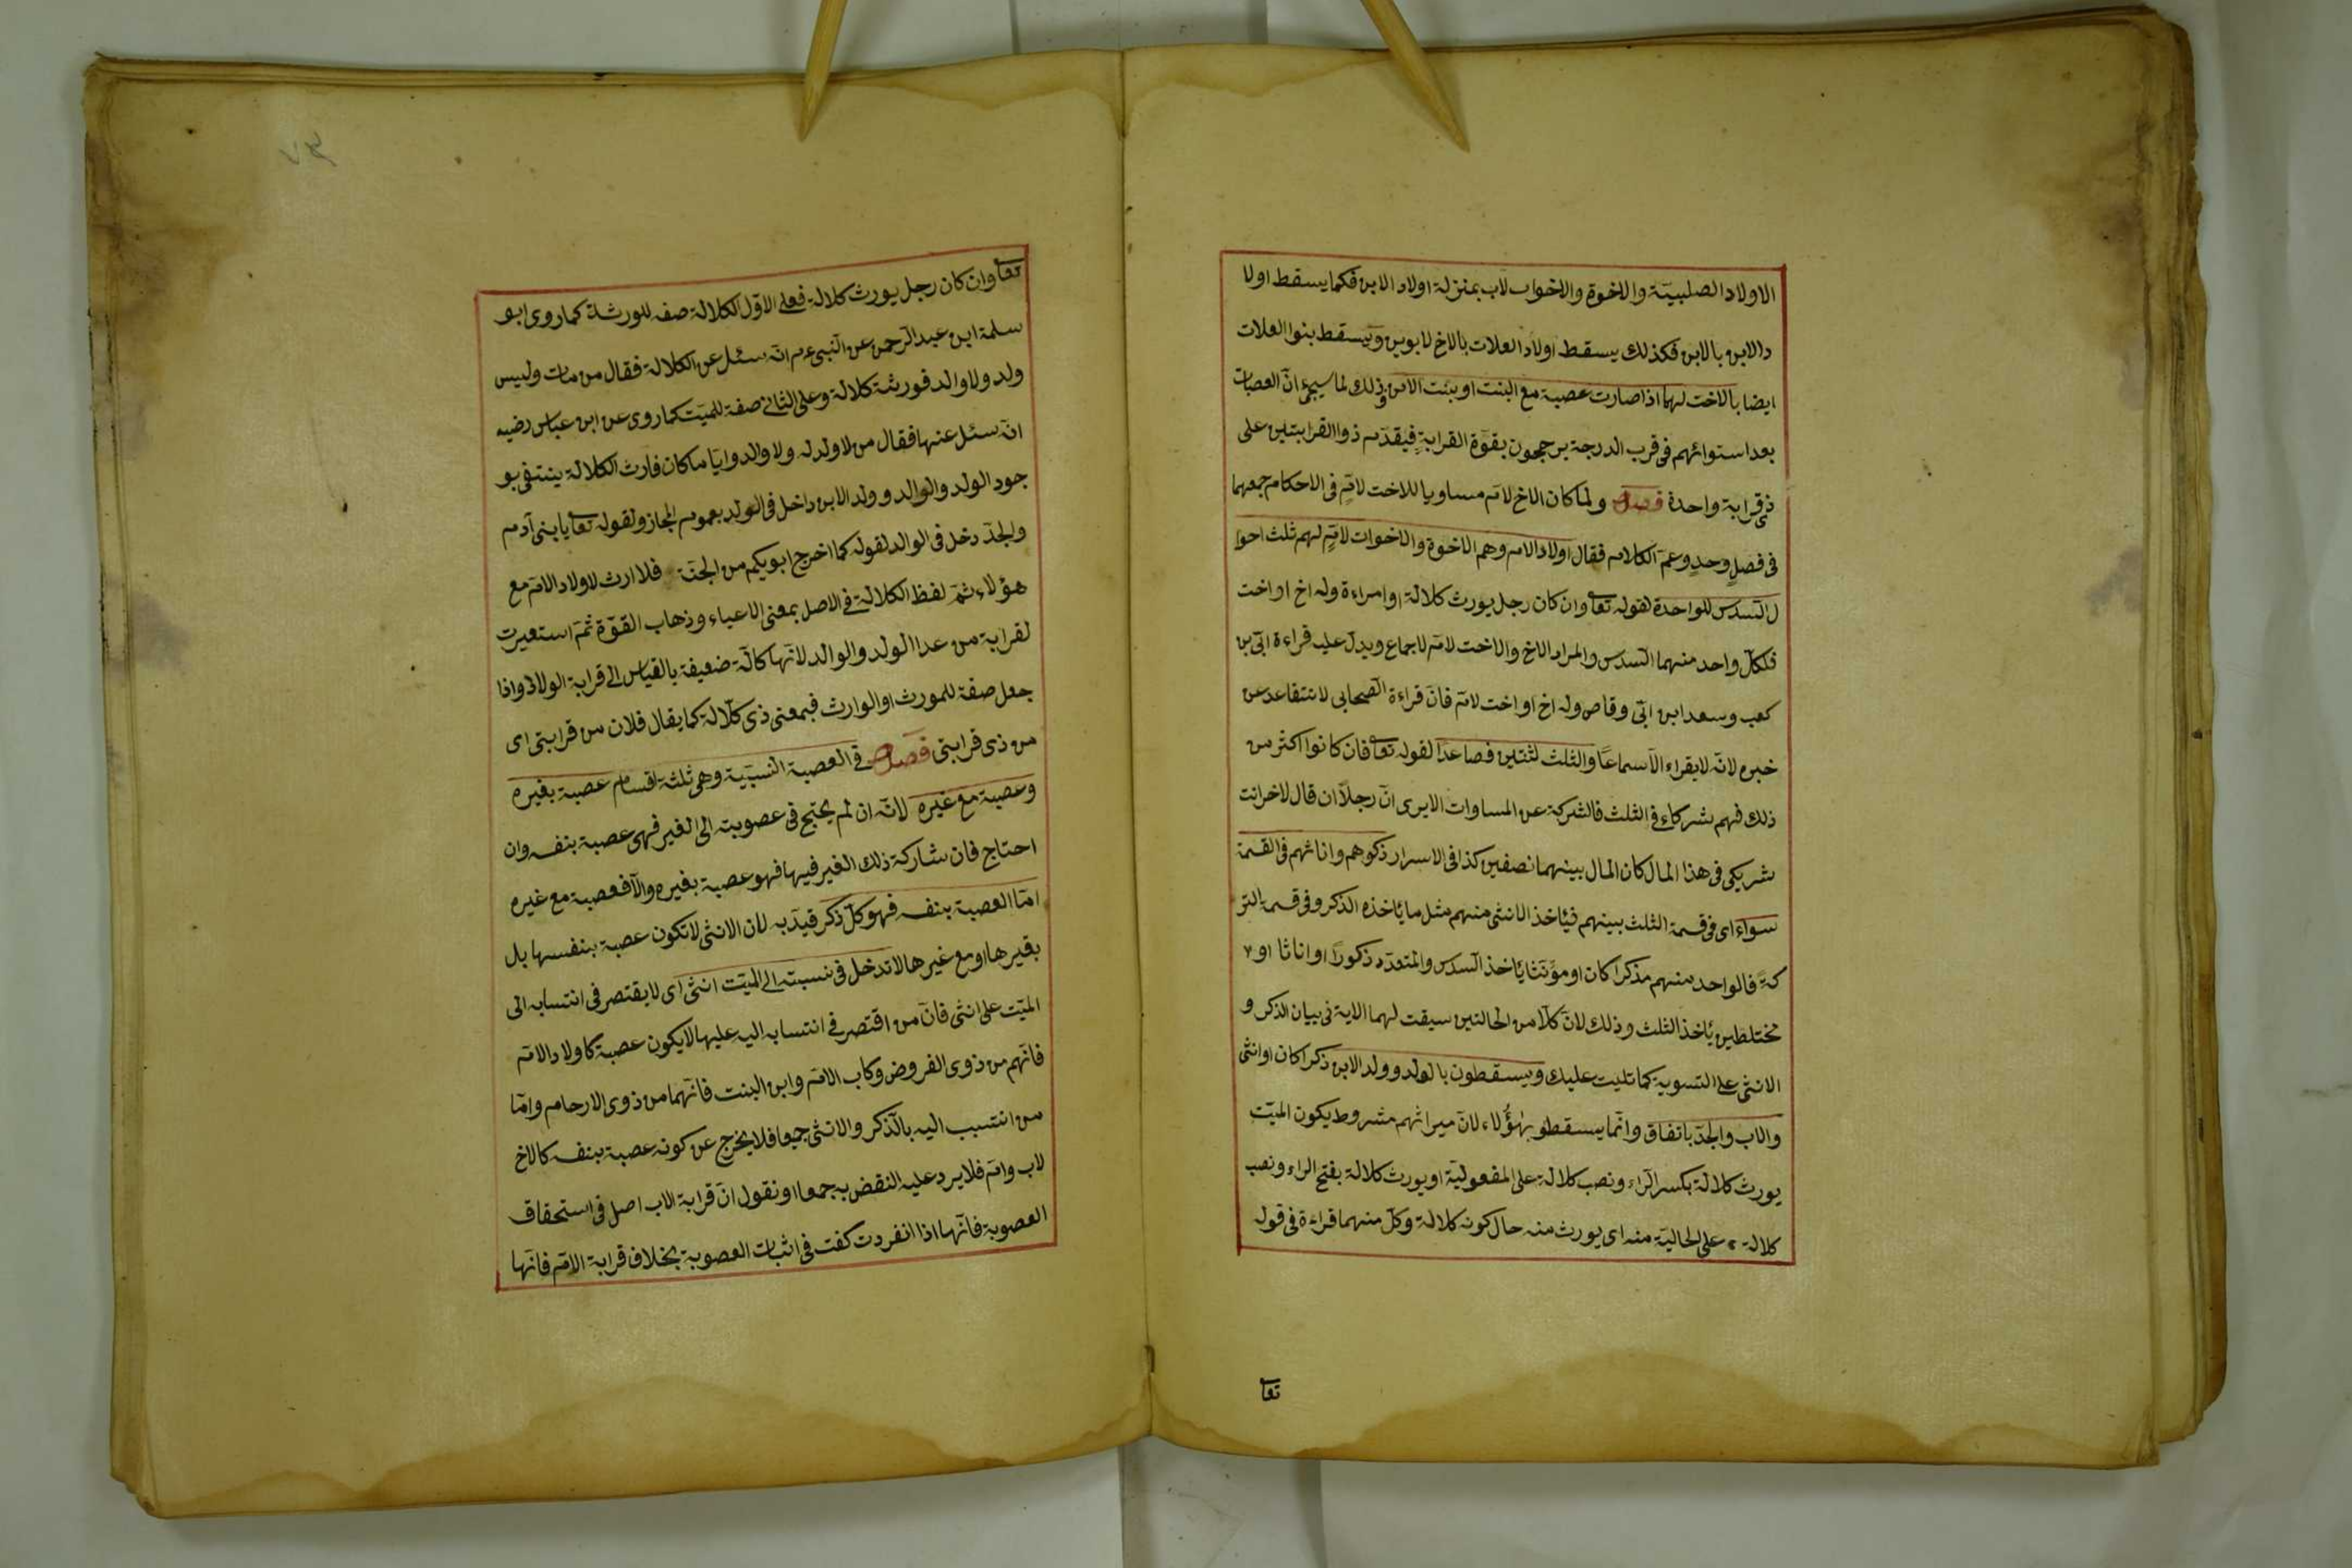 الاولاد الصلبيّة والاخوة والاخوات لاب بمنزلة اولاد الابن فكما يسقط اولا
د الابن بالابن فكذلك يسقط اولاد العلات بالاخ لابوين ويسقط بنوا العلات
ايضا بالاخت لهما اذا صارت عصبة مع البنت او بنت الابن وذلك لما سيجئ انّ العصبات
بعد استوائهم فى قرب الدرجة يرجحون بقوّة القرابةٍ فيقدّم ذوا القرابتين على
ذى قرابة واحدة فصل ولمّا كان الاخ لامّ مساويا للاخت لامّ فى الاحكام جمعهما
فى فصلٍ وحدٍ وعمّ الكلام فقال اولاد الام وهم الاخوة والاخوات لامٍّ لهم ثلث احوا
ل السّدس للواحدة لقوله تعا وان كان رجل يورث كلالة او امراءة وله اخ او اخت
فلكلّ واحد منهما السّدس والمراد الاخ والاخت لامّ لاجماع ويدلّ عليه قراءة ابىّ بن
كعب وسعد ابن ابىّ وقاص وله اخ او اخت لامّ فانّ قراءة الصّحابى لا تتقاعد عن
خبره لانّه لا يقراء الاّ سماعًا والثلث لثنتين فصاعدًا لقوله تعا فان كانوا اكثر من
ذلك فهم شركاء فى الثلث فالشركة عن المساوات الا يرى انّ رجلاً ان قال لاخر انت
شريكى فى هذا المال كان المال بينهما نصفين كذا فى الاسرار ذكوهم واناثهم فى القسمة
سواء اى فى قسمة الثلث بينهم فئاخذ الانثى منهم مثل ما ئاخذه الذكر وفى قسمة التر
كةَ فالواحد منهم مذكرا كان او مؤنّثا ئاخذ السّدس والمتعدّد ذكورًا او اناثا او ٢
مختلطين ئاخذ الثلث وذلك لانّ كلاّ من الحالتين سيقت لهما الاية فى بيان الذكر و
الانثى على التسوية كما تليت عليك ويسقطون بالولد وولد الابن ذكرا كان او انثى
والاب والجدّ باتفاق وانّما يسقطو بهٰؤُلاء لانّ ميراثهم مشروط بكون الميّت
يورث كلالة بكسر الرّاء ونصب كلالة على المفعوليّة او يورث كلالة بفتح الراء ونصب
كلالة على الحاليّة منه اى يورث منه حال كونه كلالة وكلّ منهما قراءة فى قوله
تعا
٧٣
تعا وان كان رجل يورث كلالة فعلى الاوّل الكلالة صفه للورثة كما روى ابو
سلمة ابن عبد الرّحمن عن النّبى ءم انّه سئل عن الكلالة فقال من مات وليس
ولد ولا والد فورثته كلالة وعلى الثانى صفة للميّت كما روى عن ابن عباس رضيه
انّه سئل عنها فقال من لا ولد له ولا والد وايّا ما كان فارث الكلالة ينتفى بو
جود الولد والوالد وولد الابن داخل فى الولد بعموم المجاز ولقوله تعا يا بنى آدم
والجدّ دخل فى الوالد لقوله كما اخرج ابويكم من الجنّة فلا ارث لاولاد الامّ مع
هؤلاء ثمّ لفظ الكلالة فى الاصل بمعنى الاعياء وذهاب القوّة ثمّ استعيرت
لقرابة من عدا الولد والوالد لانّها كالّة ضعيفة بالقياس الى قرابة الولاد واذا
جعل صفة للمورث او الوارث فبمعنى ذى كلّالة كما يقال فلان من قرابتى اى
من ذى قرابتى فصل فى العصبة النّسبيّة وهى ثلثة اقسام عصبة بغيره
وعصبة مع غيره لانّه ان لم يحتج فى عصوبته الى الغير فهى عصبة بنفسه وان
احتاج فان شاركة ذلك الغير فيها فهو عصبة بغيره والاّ فعصبة مع غيره
امّا العصبة بنفسه فهو كلّ ذكر قيدّ به لان الانثى لا تكون عصبة بنفسها بل
بغيرها او مع غيرها لا تدخل فى نسبته الى الميّت انثى اى لا يقتصر فى انتسابه الى
الميّت على انثى فانّ من اقتصر فى انتسابه اليه عليها لا يكون عصبة كاولاد الامّ
فانّهم من ذوى الفروض وكاب الامّ وابن البنت فانّهما من ذوى الارحام وامّا
من انتسب اليه بالّذكر والانثى جميعا فلا يخرج عن كونه عصبة بنفسه كالاخ
لاب وامّ فلا يرد عليه النقض به جمعا او نقول انّ قرابة الاب اصل فى استحقاق
العصوبة فانّها اذا انفردت كفت فى اثبات العصوبة بخلاف قرابة الامّ فانّها